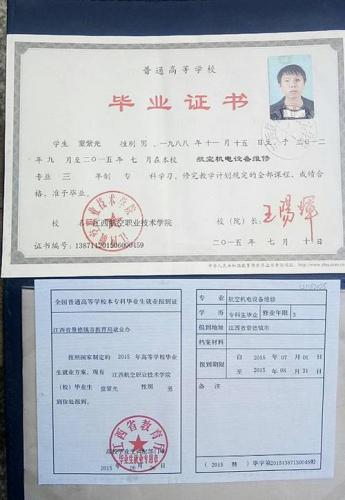 普通高等学校
毕业证书
学生 童紫光 性别 男，一九八八年 十一月 十五日生，于 二〇一二
年 九月至二〇一五年 七月在本校 航空机电设备维修
专业 三 年制 专 科学习，修完教学计划规定的全部课程，成绩合
格，准予毕业。
校 名：江西航空职业技术学院 校（院）长：
证书编号：138711201506000459 二〇一五年 七月 十日
全国普通高等学校本专科毕业生就业报到证
江西省景德镇市教育局就业办
按照国家制定的 2015 年高等学校毕业
生就业方案，现有 江西航空职业技术学院
（校）毕业生 童紫光 性别 男
到你处报到。
江西省教育厅
毕业生就业专用章
专业 航空机电设备维修
学历 专科生毕业 修业年限 3
报到地址 江西省景德镇市
档案材料
报到期限 自 2015 年 07 月 01 日
至 2015 年 08 月 31 日
备注